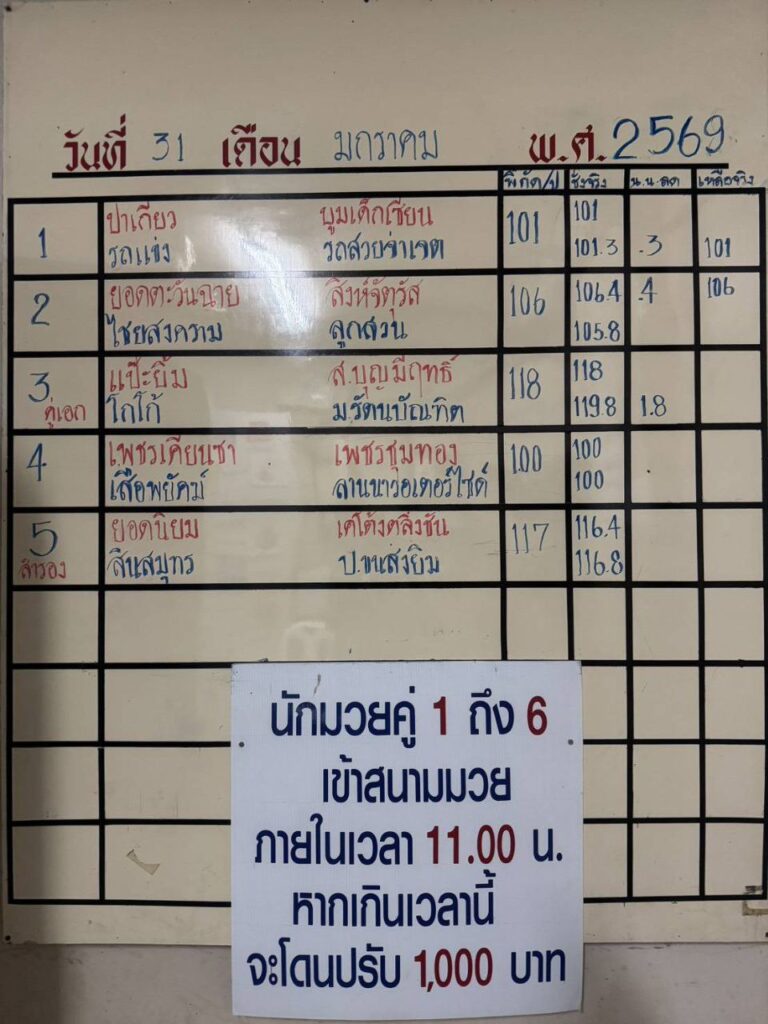 วันที่ 31 เดือน มกราคม พ.ศ. 2569
พิกัด/ป ชั่งจริง น.น.ลด เหลือจริง
1 ป่าเถียว พูมเด็กเซียน 101 101
รถแข่ง รถสวยจ่าเจต 101.3 .3 101
2 ยอดตะวันฉาย สิงห์จัตุรัส 106 106.4 .4 106
ไชยสงคราม ลูกสวน 105.8
3 แป๊ะยิ้ม ส.บุญมีฤทธิ์ 118 118
คู่เอก โกโก้ ม.รัตนบัณฑิต 119.8 1.8
4 เพชรเคียนซา เพชรชุมทอง 100 100
เสือพยัคฆ์ ลานนาวอเตอร์ไซด์ 100
5 ยอดนิยม เคโต้งตลิ่งชัน 117 116.4
สำรอง สินสมุทร ป.ขนส่งยิม 116.8
นักมวยคู่ 1 ถึง 6
เข้าสนามมวย
ภายในเวลา 11.00 น.
หากเกินเวลานี้
จะโดนปรับ 1,000 บาท